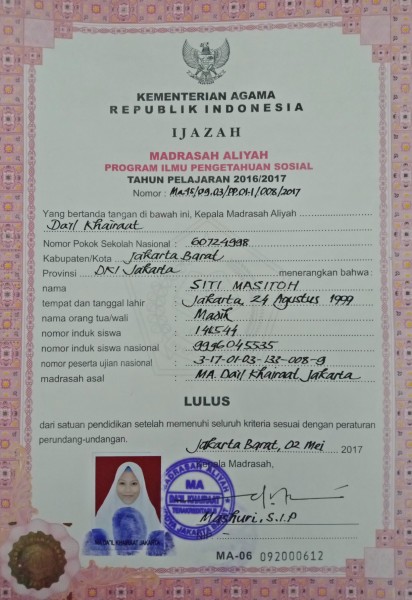 KEMENTERIAN AGAMA
REPUBLIK INDONESIA
IJAZAH
MADRASAH ALIYAH
PROGRAM ILMU PENGETAHUAN SOSIAL
TAHUN PELAJARAN 2016/2017
Nomor : Ma.15/09.03/PP.01.1/008/2017
Yang bertanda tangan di bawah ini, Kepala Madrasah Aliyah
Da'il Khairaat
Nomor Pokok Sekolah Nasional : 60724998
Kabupaten/Kota : Jakarta Barat
Provinsi : DKI Jakarta menerangkan bahwa :
nama : SITI MASITOH
tempat dan tanggal lahir : Jakarta, 24 Agustus 1999
nama orang tua/wali : Masih
nomor induk siswa : 141544
nomor induk siswa nasional : 9996045535
nomor peserta ujian nasional : 3-17-01-03-133-008-9
madrasah asal : MA. Da'il Khairaat Jakarta
LULUS
dari satuan pendidikan setelah memenuhi seluruh kriteria sesuai dengan peraturan
perundang-undangan.
Jakarta Barat, 02 Mei 2017
Kepala Madrasah,
MADRASAH ALIYAH
MA
DA'IL KHAIRAAT
JAKARTA
Mashuri, S.I.P
MA-06 092000612